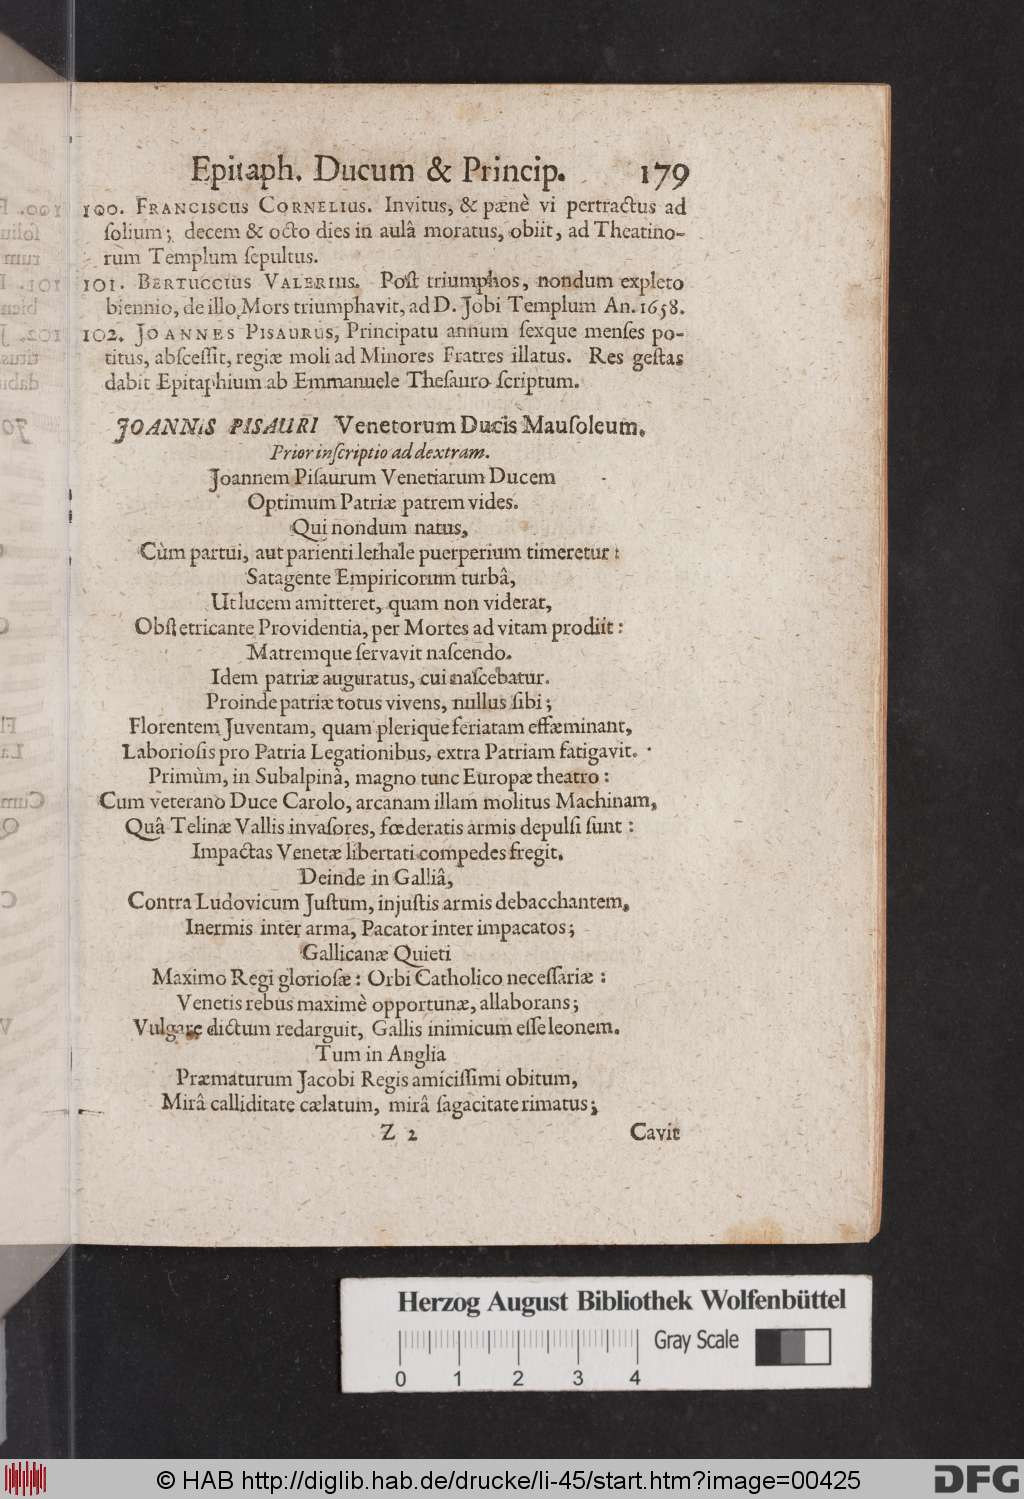 Epitaph. Ducum & Princip. 179
100. FRANCISCUS CORNELIUS. Invitus, & pænè vi pertractus ad
ſolium; decem & octo dies in aulâ moratus, obiit, ad Theatino-
rum Templum ſepultus.
101. BERTUCCIUS VALERIUS. Poſt triumphos, nondum expleto
biennio, de illo Mors triumphavit, ad D. Jobi Templum An. 1658.
102. JOANNES PISAURUS, Principatu annum ſexque menſes po-
titus, abſceſſit, regiæ moli ad Minores Fratres illatus. Res geſtas
dabit Epitaphium ab Emmanuele Theſauro ſcriptum.
JOANNIS PISAURI Venetorum Ducis Mauſoleum.
Prior inſcriptio ad dextram.
Joannem Piſaurum Venetiarum Ducem
Optimum Patriæ patrem vides.
Qui nondum natus,
Cùm partui, aut parienti lethale puerperium timeretur:
Satagente Empiricorum turbâ,
Ut lucem amitteret, quam non viderat,
Obſtetricante Providentia, per Mortes ad vitam prodiit:
Matremque ſervavit naſcendo.
Idem patriæ auguratus, cui naſcebatur.
Proinde patriæ totus vivens, nullus ſibi;
Florentem Juventam, quam plerique feriatam effæminant,
Laborioſis pro Patria Legationibus, extra Patriam fatigavit.
Primùm, in Subalpinà, magno tunc Europæ theatro:
Cum veterano Duce Carolo, arcanam illam molitus Machinam,
Quâ Telinæ Vallis invaſores, fœderatis armis depulſi ſunt:
Impactas Venetæ libertati compedes fregit.
Deinde in Galliâ,
Contra Ludovicum Juſtum, injuſtis armis debacchantem,
Inermis inter arma, Pacator inter impacatos;
Gallicanæ Quieti
Maximo Regi glorioſæ: Orbi Catholico neceſſariæ:
Venetis rebus maximè opportunæ, allaborans;
Vulgare dictum redarguit, Gallis inimicum eſſe leonem.
Tum in Anglia
Præmaturum Jacobi Regis amiciſſimi obitum,
Mirâ calliditate cælatum, mirâ ſagacitate rimatus;
Z 2 Cavit
Herzog August Bibliothek Wolfenbüttel
Gray Scale
0 1 2 3 4
© HAB http://diglib.hab.de/drucke/li-45/start.htm?image=00425
DFG